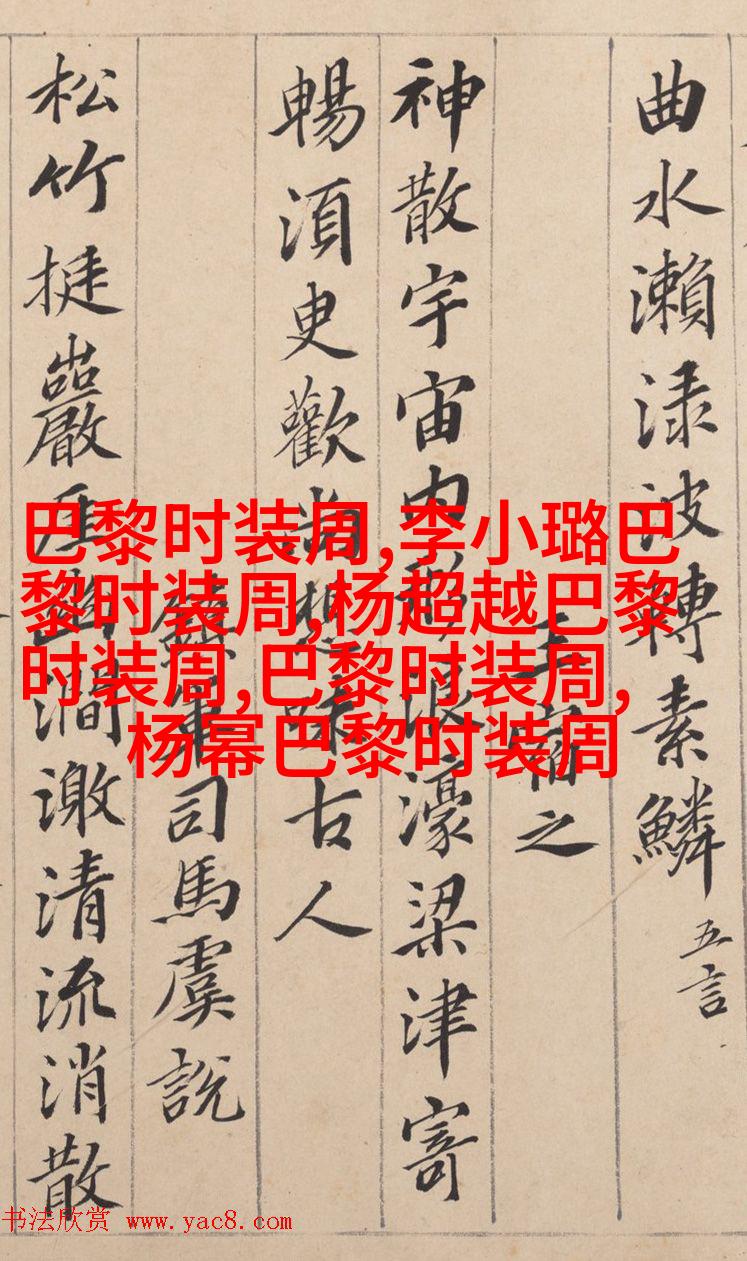 曲水瀨渌波轉素鱗 五言
王之
神散宇宙內形浪濠梁津寄
暢須臾歡尚想味古人
鎮軍司馬虞說
松竹挺巖崖幽澗激清流消散
巴黎时装周,李小璐巴
黎时装周,杨超越巴黎
时装周,巴黎时装周,
杨幂巴黎时装周
书法欣赏 www.yac8.com